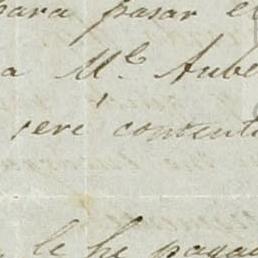 para pasar e
a M.e Aube
seré content
le he pagad